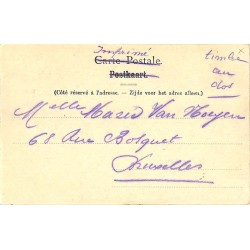 Imprimé
Carte Postale.
Postkaart.
timbre
au
dos
(Côté réservé à l'adresse. - Zijde voor het adres alleen.)
Melle Van
68 Rue Bosquet
Bruxelles